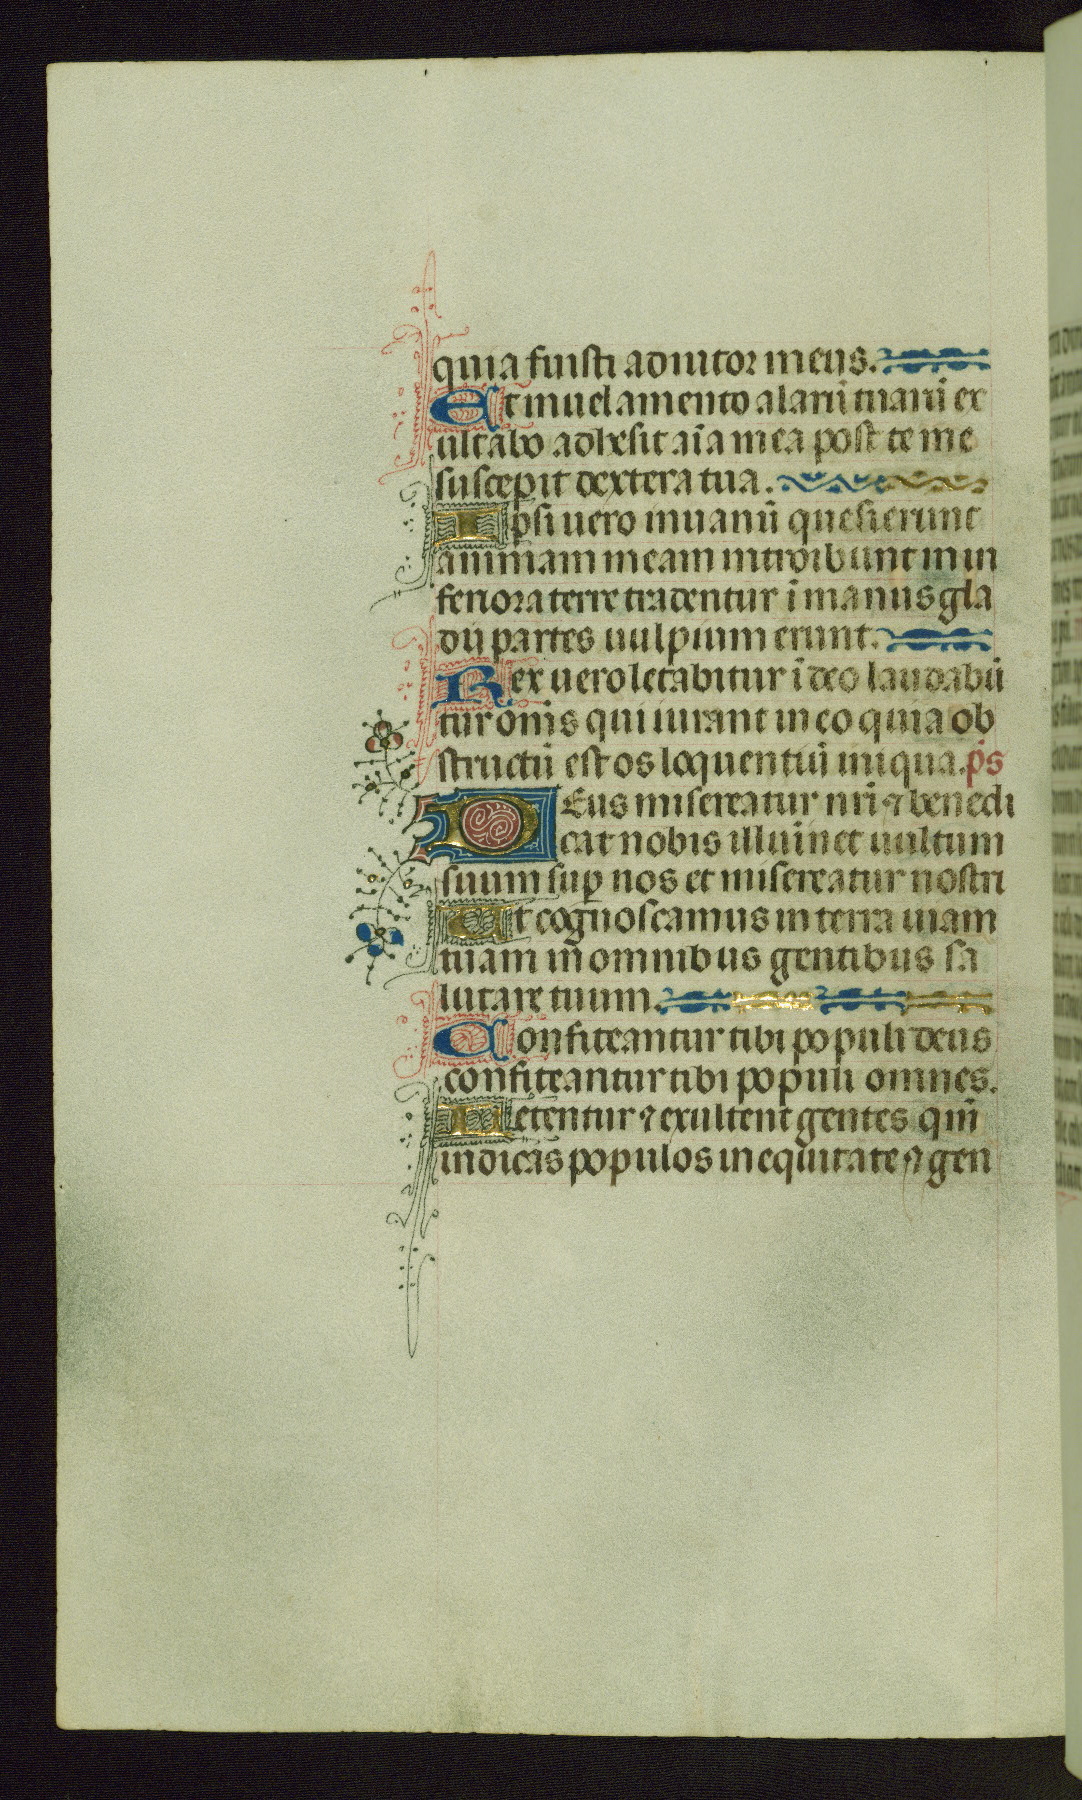 quia fuisti adiutor meus.
Et in uelamento alarū tuarū ex
ultabo adhesit aīa mea post te me
suscepit dextera tua.
Ipsi uero in uanū quesierunt
animam meam introibunt in in
feriora terre tradentur ī manus gla
dii partes uulpium erunt.
Rex uero letabitur ī deo laudabū
tur om̄s qui iurant in eo quia ob
structū est os loquentiū iniqua. p̄s
DEus misereatur nr̄i ⁊ benedi
cat nobis illuīnet uultum
suum suꝑ nos et misereatur nostri
Ut cognoscamus in terra uiam
tuam in omnibus gentibus sa
lutare tuum.
Confiteantur tibi populi deus
confiteantur tibi populi omnes.
Letentur ⁊ exultent gentes qm̄
iudicas populos in equitate ⁊ gen